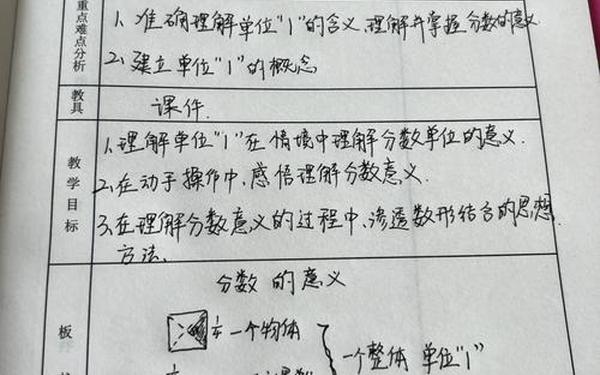 重点难点分析
1、准确理解单位"1"的含义,理解并掌握分数的意义
2、建立单位"1"的概念
教具
课件.
教学目标
1、理解单位"1"在情境中理解分数单位的意义.
2、在动手操作中、感悟理解分数意义.
3、在理解分数意义的过程中、渗透数形结合的思想
方法.
分数的意义
板
一个物体
一个整体 单位"1"